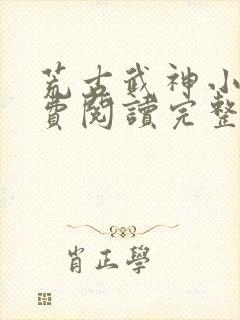 荒古武神小
費閱讀完整
肖正學